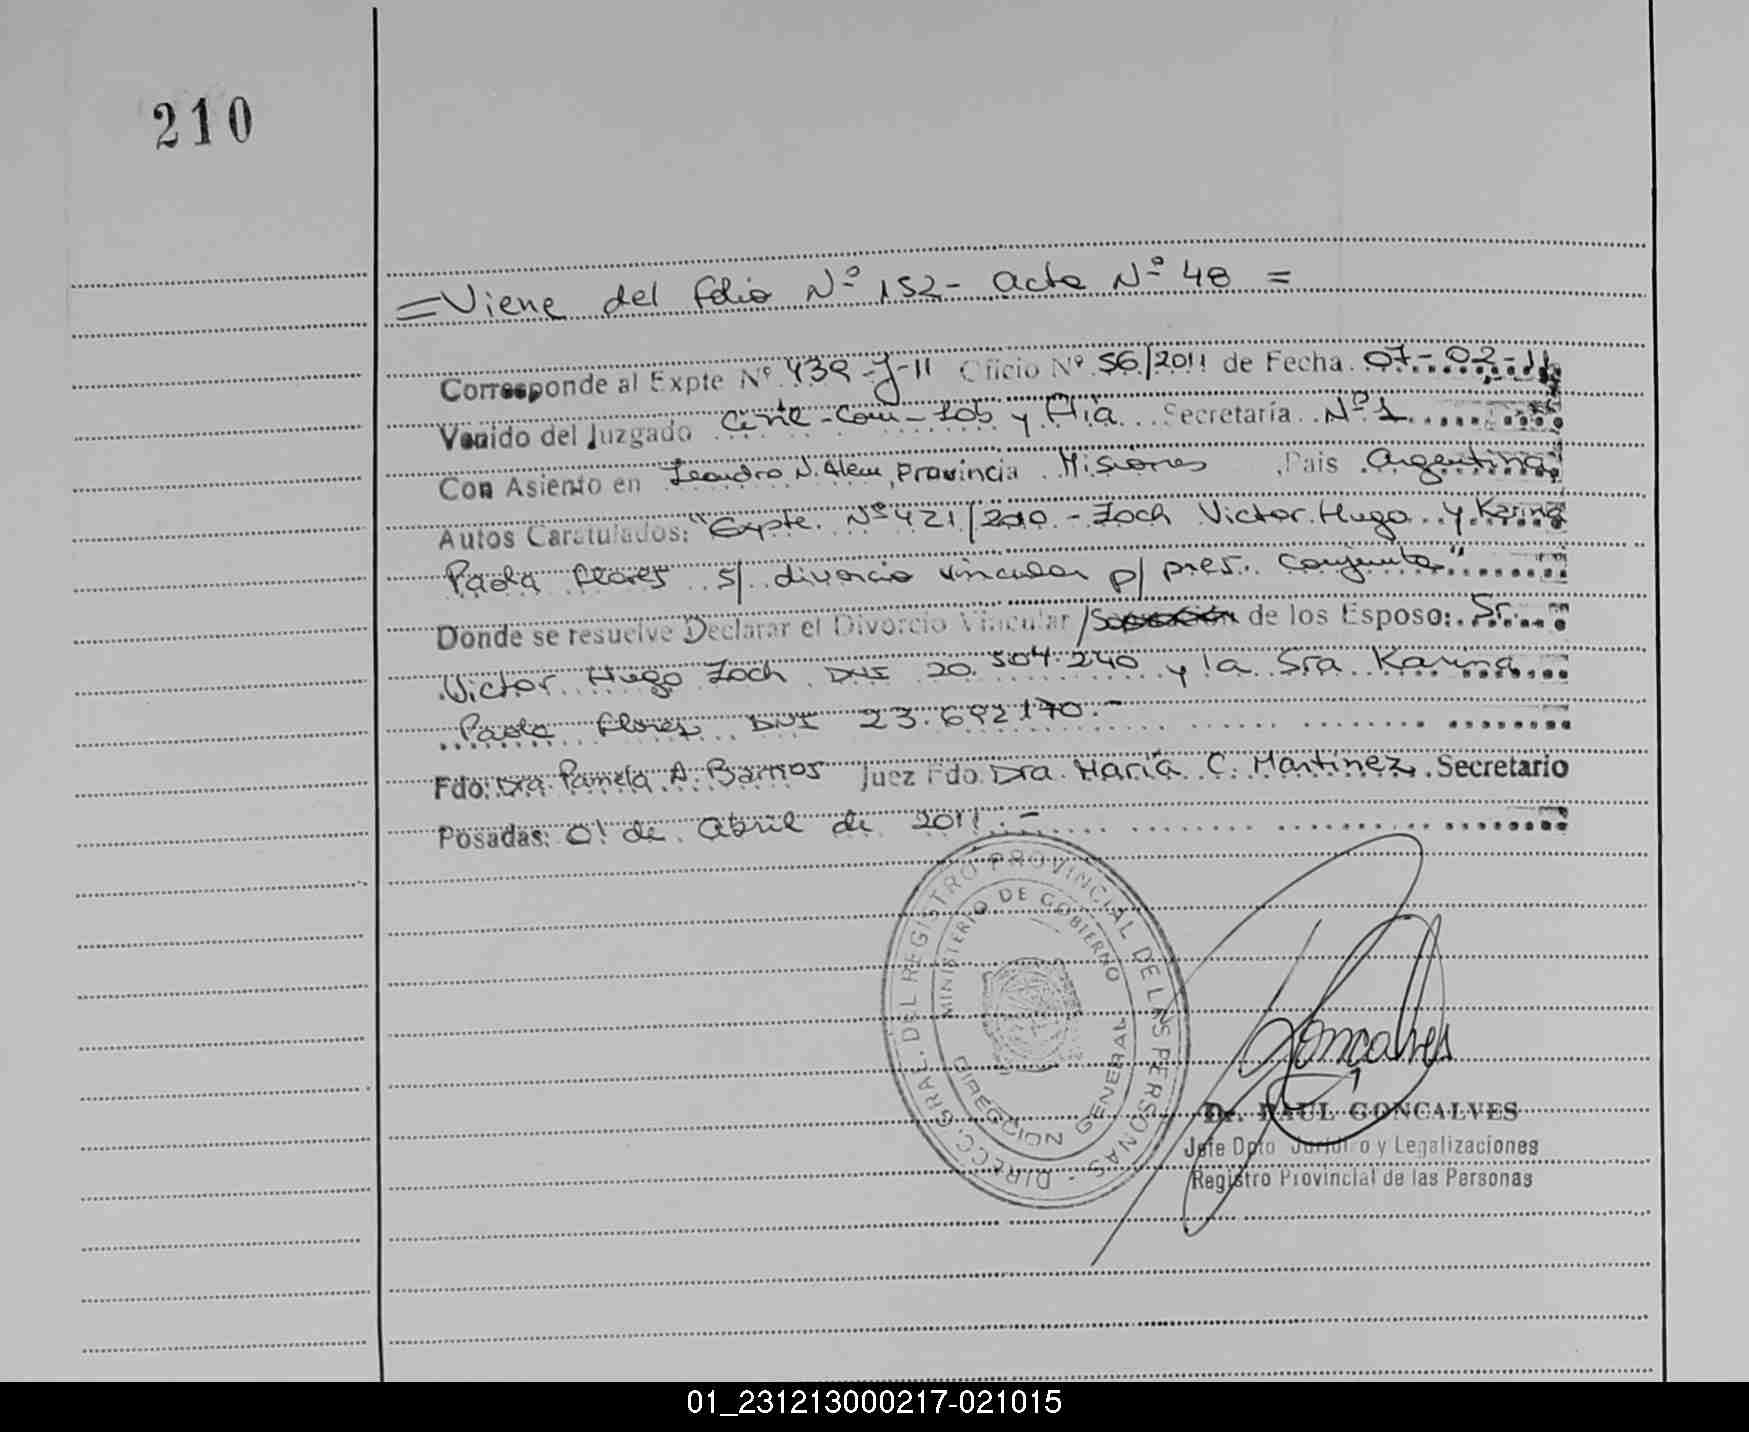 210
= Viene del folio Nº 152 - acta Nº 48 =
Corresponde al Expte Nº 439-J-11 Oficio Nº 56/2011 de Fecha 07-02-11
Venido del Juzgado Civil-Com-Lab y Flia Secretaría Nº 1
Con Asiento en Leandro N. Alem, Provincia Misiones, Pais Argentina
Autos Caratulados: "Expte. Nº 421/2010 - Zoch Victor Hugo y Karina
Paola Flores s/ divorcio vincular p/ pres. conjunta"
Donde se resuelve Declarar el Divorcio Vincular / Separación de los Esposo: Sr.
Victor Hugo Zoch DNI 20.504.240 y la Sra Karina
Paola Flores DNI 23.692170.-
Fdo: Dra. Pamela A. Barrios Juez Fdo. Dra. María C. Martinez Secretario
Posadas: 01 de abril de 2011.-
DIRECC. GRAL. DEL REGISTRO PROVINCIAL DE LAS PERSONAS
MINISTERIO DE GOBIERNO
DIRECCION GENERAL
Goncalves
Dr. RAUL GONCALVES
Jefe Dpto Jurídico y Legalizaciones
Registro Provincial de las Personas
01_231213000217-021015